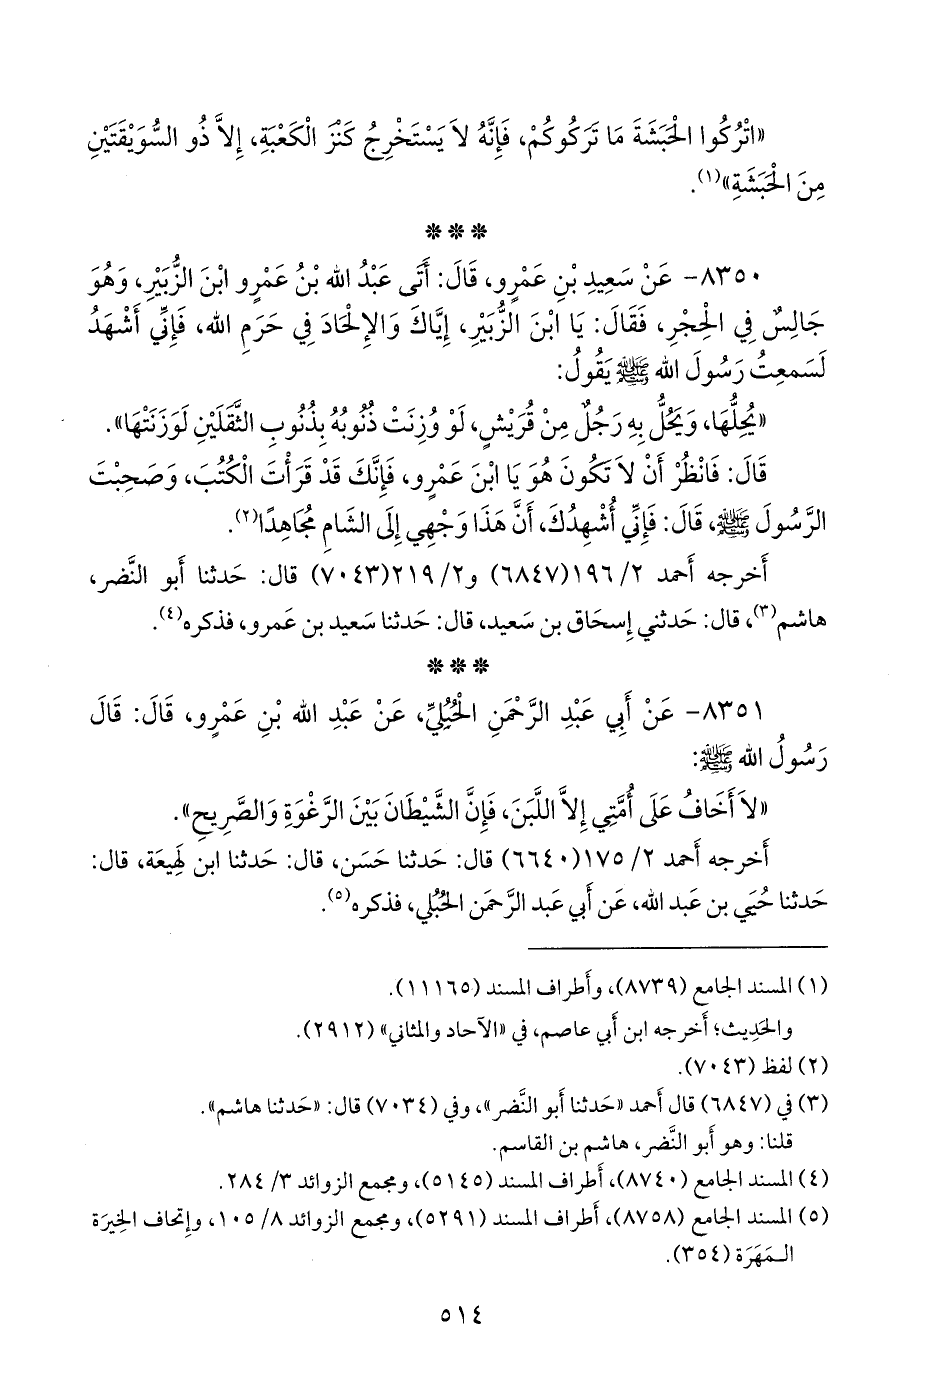 «اتْرُكُوا الْحَبَشَةَ مَا تَرَكُوكُمْ، فَإِنَّهُ لاَ يَسْتَخْرِجُ كَنْزَ الْكَعْبَةِ، إِلاَّ ذُو السُّوَيْقَتَيْنِ
مِنَ الْحَبَشَةِ»(١).
***
٨٣٥٠- عَنْ سَعِيدِ بْنِ عَمْرٍو، قَالَ: أَتَى عَبْدُ الله بْنُ عَمْرٍو ابْنَ الزُّبَيْرِ، وَهُوَ
جَالِسٌ فِي الْحِجْرِ، فَقَالَ: يَا ابْنَ الزُّبَيْرِ، إِيَّاكَ وَالإِلْحَادَ فِي حَرَمِ الله، فَإِنِّي أَشْهَدُ
لَسَمِعتُ رَسُولَ الله ﷺ يَقُولُ:
«يُحِلُّهَا، وَيَحُلُّ بِهِ رَجُلٌ مِنْ قُرَيْشٍ، لَوْ وُزِنَتْ ذُنُوبُهُ بِذُنُوبِ الثَّقَلَيْنِ لَوَزَنَتْهَا».
قَالَ: فَانْظُرْ أَنْ لاَ تَكُونَ هُوَ يَا ابْنَ عَمْرٍو، فَإِنَّكَ قَدْ قَرَأْتَ الْكُتُبَ، وَصَحِبْتَ
الرَّسُولَ ﷺ، قَالَ: فَإِنِّي أُشْهِدُكَ، أَنَّ هَذَا وَجْهِي إِلَى الشَّامِ مُجَاهِدًا(٢).
أَخرجه أَحمد ٢/ ١٩٦(٦٨٤٧) و٢/ ٢١٩(٧٠٤٣) قال: حَدثنا أَبو النَّضر،
هاشم(٣)، قال: حَدثني إِسحَاق بن سَعيد، قال: حَدثنا سَعيد بن عَمرو، فذكره(٤).
***
٨٣٥١- عَنْ أَبِي عَبْدِ الرَّحْمَنِ الْحُبُلِيِّ، عَنْ عَبْدِ الله بْنِ عَمْرٍو، قَالَ: قَالَ
رَسُولُ الله ﷺ:
«لاَ أَخَافُ عَلَى أُمَّتِي إِلاَّ اللَّبَنَ، فَإِنَّ الشَّيْطَانَ بَيْنَ الرَّغْوَةِ وَالصَّرِيحِ».
أَخرجه أَحمد ٢/ ١٧٥(٦٦٤٠) قال: حَدثنا حَسَن، قال: حَدثنا ابن لَهِيعَة، قال:
حَدثنا حُيَي بن عَبد الله، عَن أَبي عَبد الرَّحمَن الحُبُلي، فذكره(٥).
(١) المسند الجامع (٨٧٣٩)، وأَطراف المسند (١١١٦٥).
والحَدِيث؛ أَخرجه ابن أَبي عاصم، في «الآحاد والمثاني» (٢٩١٢).
(٢) لفظ (٧٠٤٣).
(٣) في (٦٨٤٧) قال أَحمد «حَدثنا أَبو النَّضر»، وفي (٧٠٣٤) قال: «حَدثنا هاشم».
قلنا: وهو أَبو النَّضر، هاشم بن القاسم.
(٤) المسند الجامع (٨٧٤٠)، أَطراف المسند (٥١٤٥)، ومجمع الزوائد ٣/ ٢٨٤.
(٥) المسند الجامع (٨٧٥٨)، أَطراف المسند (٥٢٩١)، ومجمع الزوائد ٨/ ١٠٥، وإِتحاف الخِيرَة
المَهَرَة (٣٥٤).
٥١٤